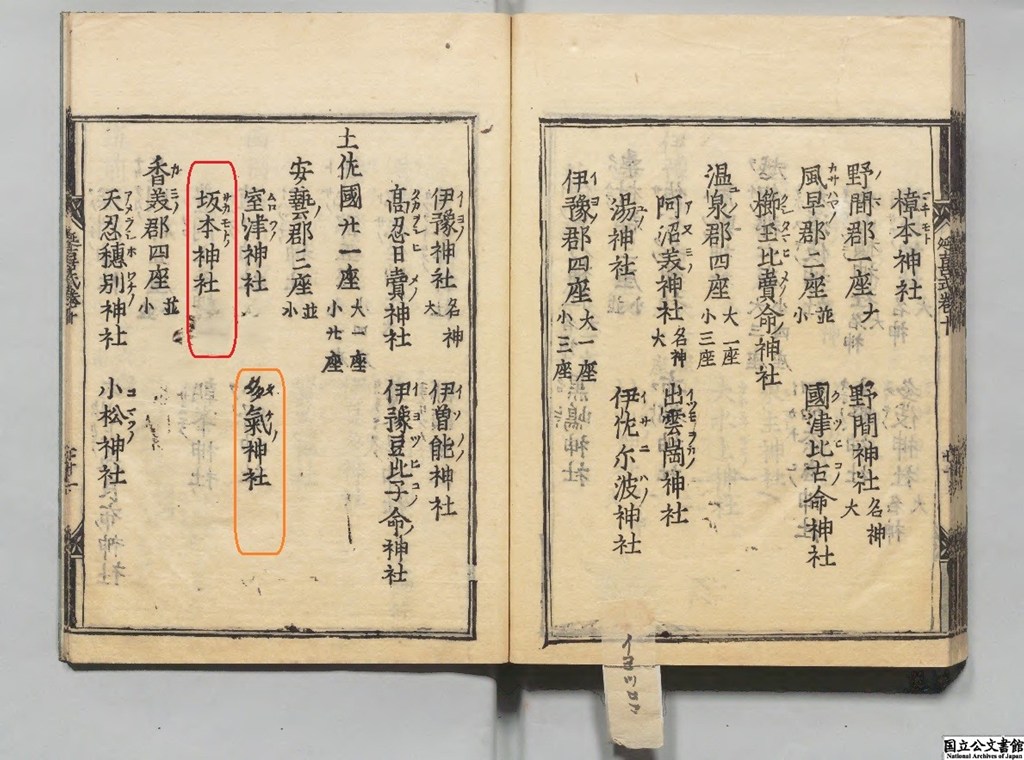 樟本神社
野間郡一座大
野間神社名神大
風早郡二座並小
國津比古命神社
櫛玉比賣命神社
温泉郡四座大一座小三座
阿沼美神社名神大
出雲崗神社
湯神社
伊佐尓波神社
伊豫郡四座大一座小三座
伊豫神社名神大
伊曽能神社
高忍日賣神社
伊豫豆比子命神社
土佐國廿一座大一座小廿座
安藝郡三座並小
室津神社
多氣神社
坂本神社
香美郡四座並小
天忍穗別神社
小松神社
延喜式卷十
イヨツロマ
国立公文書館
National Archives of Japan